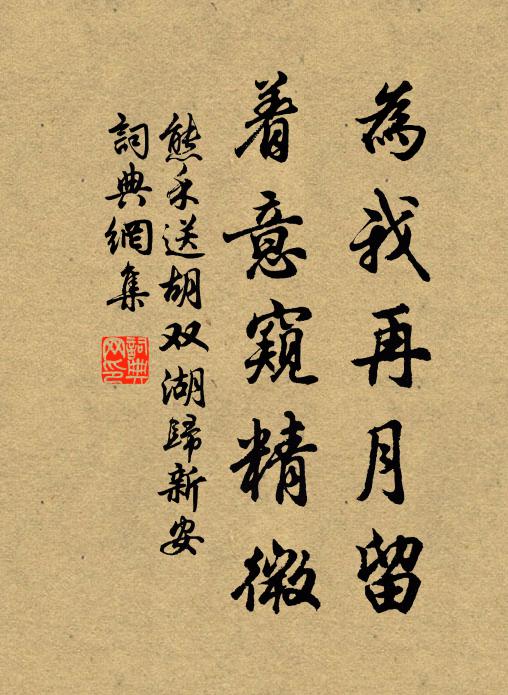 為我再月留
着意窺精微
熊禾送胡双湖歸新安
詞典網集
詞典網印